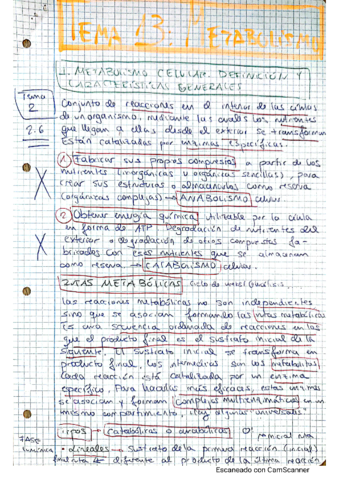 TEMA 13: METABOLISMO
1. METABOLISMO CELULAR. DEFINICIÓN Y
CARACTERÍSTICAS GENERALES
Tema
2
2.6
Conjunto de reacciones en el interior de las células
de un organismo, mediante las cuales los nutrientes
que llegan a ellas desde el exterior se transforman
Están catalizadas por enzimas específicas.
1) Fabricar sus propios compuestos a partir de los
nutrientes (inorgánicos y orgánicos sencillos), para
crear sus estructuras o almacenarlos como reserva
(orgánicas complejas) → ANABOLISMO celular.
2) Obtener energía química utilizable por la célula
en forma de ATP. Degradación de nutrientes del
exterior o degradación de otros compuestos fa-
bricados con esos nutrientes que se almacenan
como reserva → CATABOLISMO celular.
2. RUTAS METABÓLICAS
las reacciones metabólicas no son independientes
sino que se asocian formando las rutas metabólicas
(es una secuencia ordenada de reacciones en las
que el producto final es el sustrato inicial de la
siguiente. El sustrato inicial se transforma en
producto final, los intermedios son los metabolitos
Cada reacción está catalizada por un enzima
específico. Para hacerlas más eficaces, estas enzimas
se asocian y forman complejos multienzimáticos en un
mismo compartimento. Hay algunas "universales"
TIPOS → Catabólicas o anabólicas
FASE
• Lineales → Sustrato de la primera reacción (inicial)
diferente al producto de la última reacción
Escaneado con CamScanner